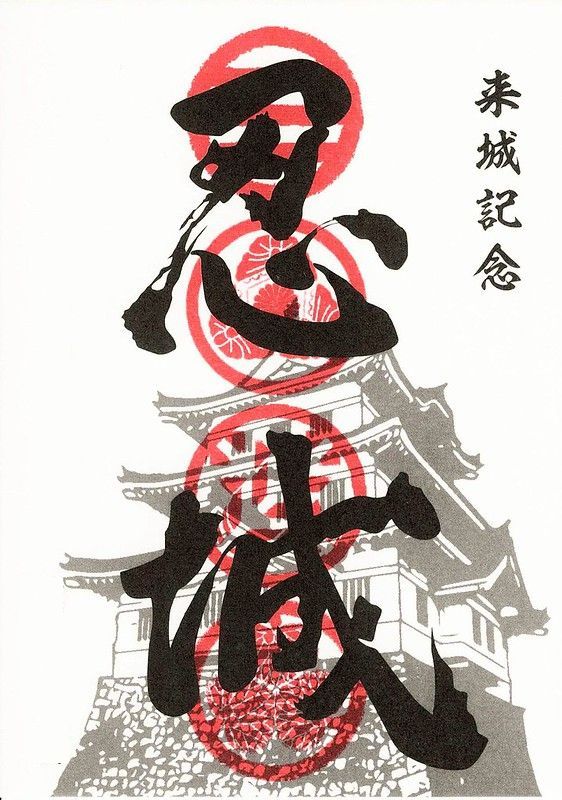 来城記念
忍城